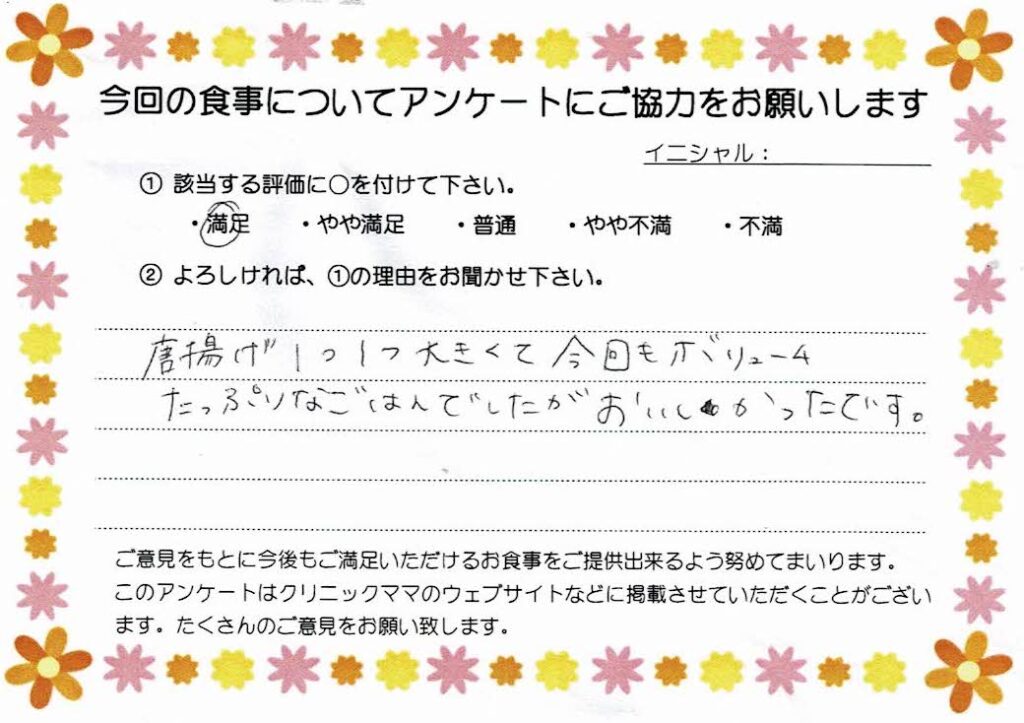 今回の食事についてアンケートにご協力をお願いします
イニシャル：
① 該当する評価に〇を付けて下さい。
・満足 ・やや満足 ・普通 ・やや不満 ・不満
② よろしければ、①の理由をお聞かせ下さい。
唐揚げ1つ1つ大きくて今回もボリューム
たっぷりなごはんでしたがおいしかったです。
ご意見をもとに今後もご満足いただけるお食事をご提供出来るよう努めてまいります。
このアンケートはクリニックママのウェブサイトなどに掲載させていただくことがござい
ます。たくさんのご意見をお願い致します。